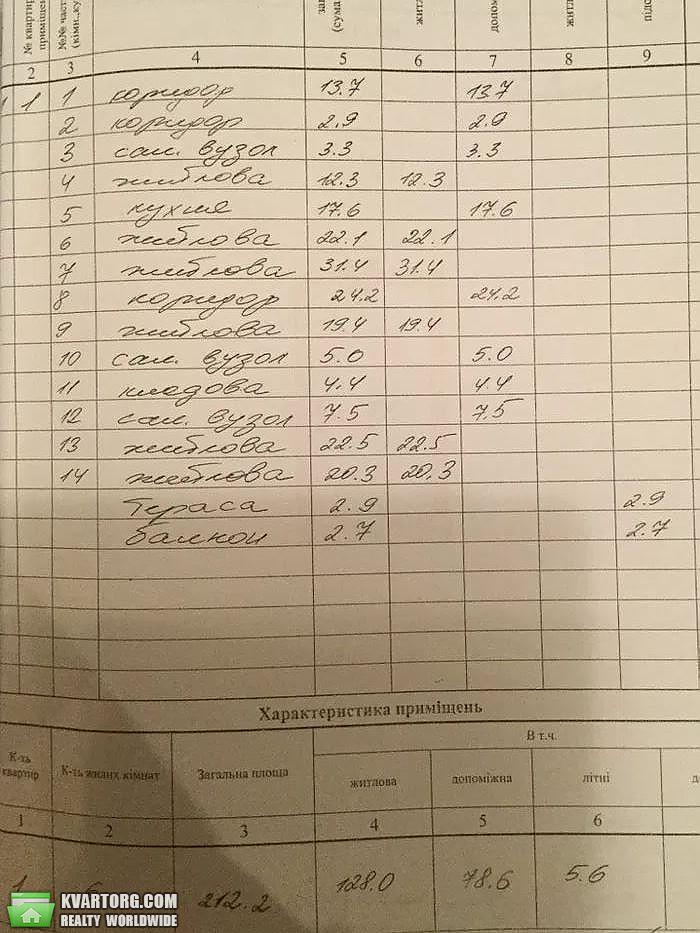 № квартир
приміщен
№№ част
(кімн.,ку
За
(сума
житл
допом
житл
підс
2 3 4 5 6 7 8 9
1 1 1 коридор 13.7 13.7
2 коридор 2.9 2.9
3 сан. вузол 3.3 3.3
4 житлова 12.3 12.3
5 кухня 17.6 17.6
6 житлова 22.1 22.1
7 житлова 31.4 31.4
8 коридор 24.2 24.2
9 житлова 19.4 19.4
10 сан. вузол 5.0 5.0
11 кладова 4.4 4.4
12 сан. вузол 7.5 7.5
13 житлова 22.5 22.5
14 житлова 20.3 20.3
тераса 2.9 2.9
балкон 2.7 2.7
Характеристика приміщень
К-ть
квартир
К-ть жилих кімнат
Загальна площа
В т.ч.
житлова допоміжна літні
1 2 3 4 5 6
1 6 212.2 128.0 78.6 5.6
KVARTORG.COM
REALTY WORLDWIDE